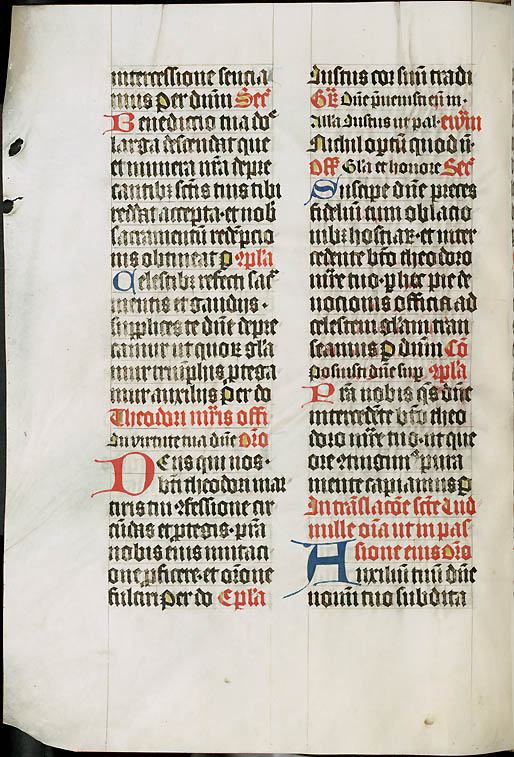 intercessione sentia
mus Per dnm Secr
Benedictio tua dne
larga descendat que
et munera nra depre
cantibz sctis tuis tibi
reddat accepta · et nob
sacramentu redepcio
nis obtineat P 9pla
Celestibz refecti sac
mentis et gaudiis ·
supplices te dne depre
camur ut quoru gla
mur triumphis protega
mur auxiliis Per do
Theodori mris offi
In virtute tua dne Oro
Deus qui nos ·
bti theodori mar
tiris tui 9fessione cir
cudas et protegis · pra
nobis eius imitati
one pficere · et orone
fulciri Per do Epla
Iustus cor suu tradi
Gr Dne pvenisti eu in ·
Alla Iustus ut pal · ewm
Nichil optu quod n ·
Off Gla et honore Secr
Suscipe dne preces
fideliu cum oblacio
nibz hostiar · et inter
cedente bto theodoro
mre tuo · p hec pie de
nocionis officia ad
celestem glam tran
seamus P dnm Co
Posuisti dne sup 9pla
Pra nobis qs dne
intercedete bto theo
doro mre tuo · ut que
ore 9tingim9 pura
mente capiamus P
In translacoe scte Lud
mille oia ut in pas
sione eius Oro
Auxiliu tuu dne
nomi tuo subdita